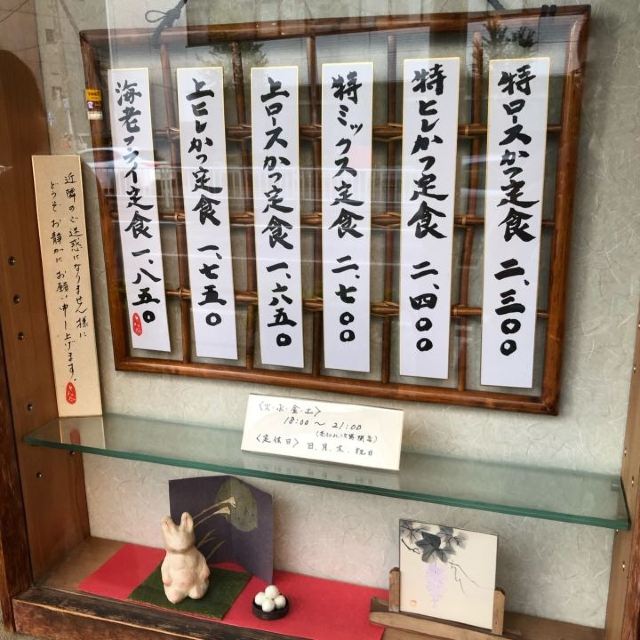 特ロースかつ定食 二、三〇〇
特ヒレかつ定食 二、四〇〇
特ミックス定食 二、七〇〇
上ロースかつ定食 一、六五〇
上ヒレかつ定食 一、七五〇
海老フライ定食 一、八五〇
近隣のご迷惑になりません様に
どうぞお静かにお願い申し上げます。
〈火・水・金・土〉
18:00〜21:00
〈定休日〉日、月、木、祝日